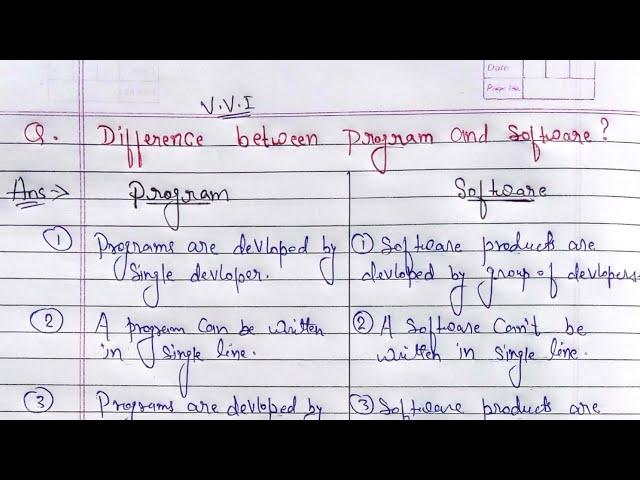 Date
Page No.
V.V.I
Q. Difference between program and Software?
Ans :-> Program Software
① Programs are devloped by ① Software products are
Single devloper. devloped by group of devlopers.
② A program can be written ② A Software can't be
in Single line. written in single line.
③ Programs are devloped by ③ Software products are